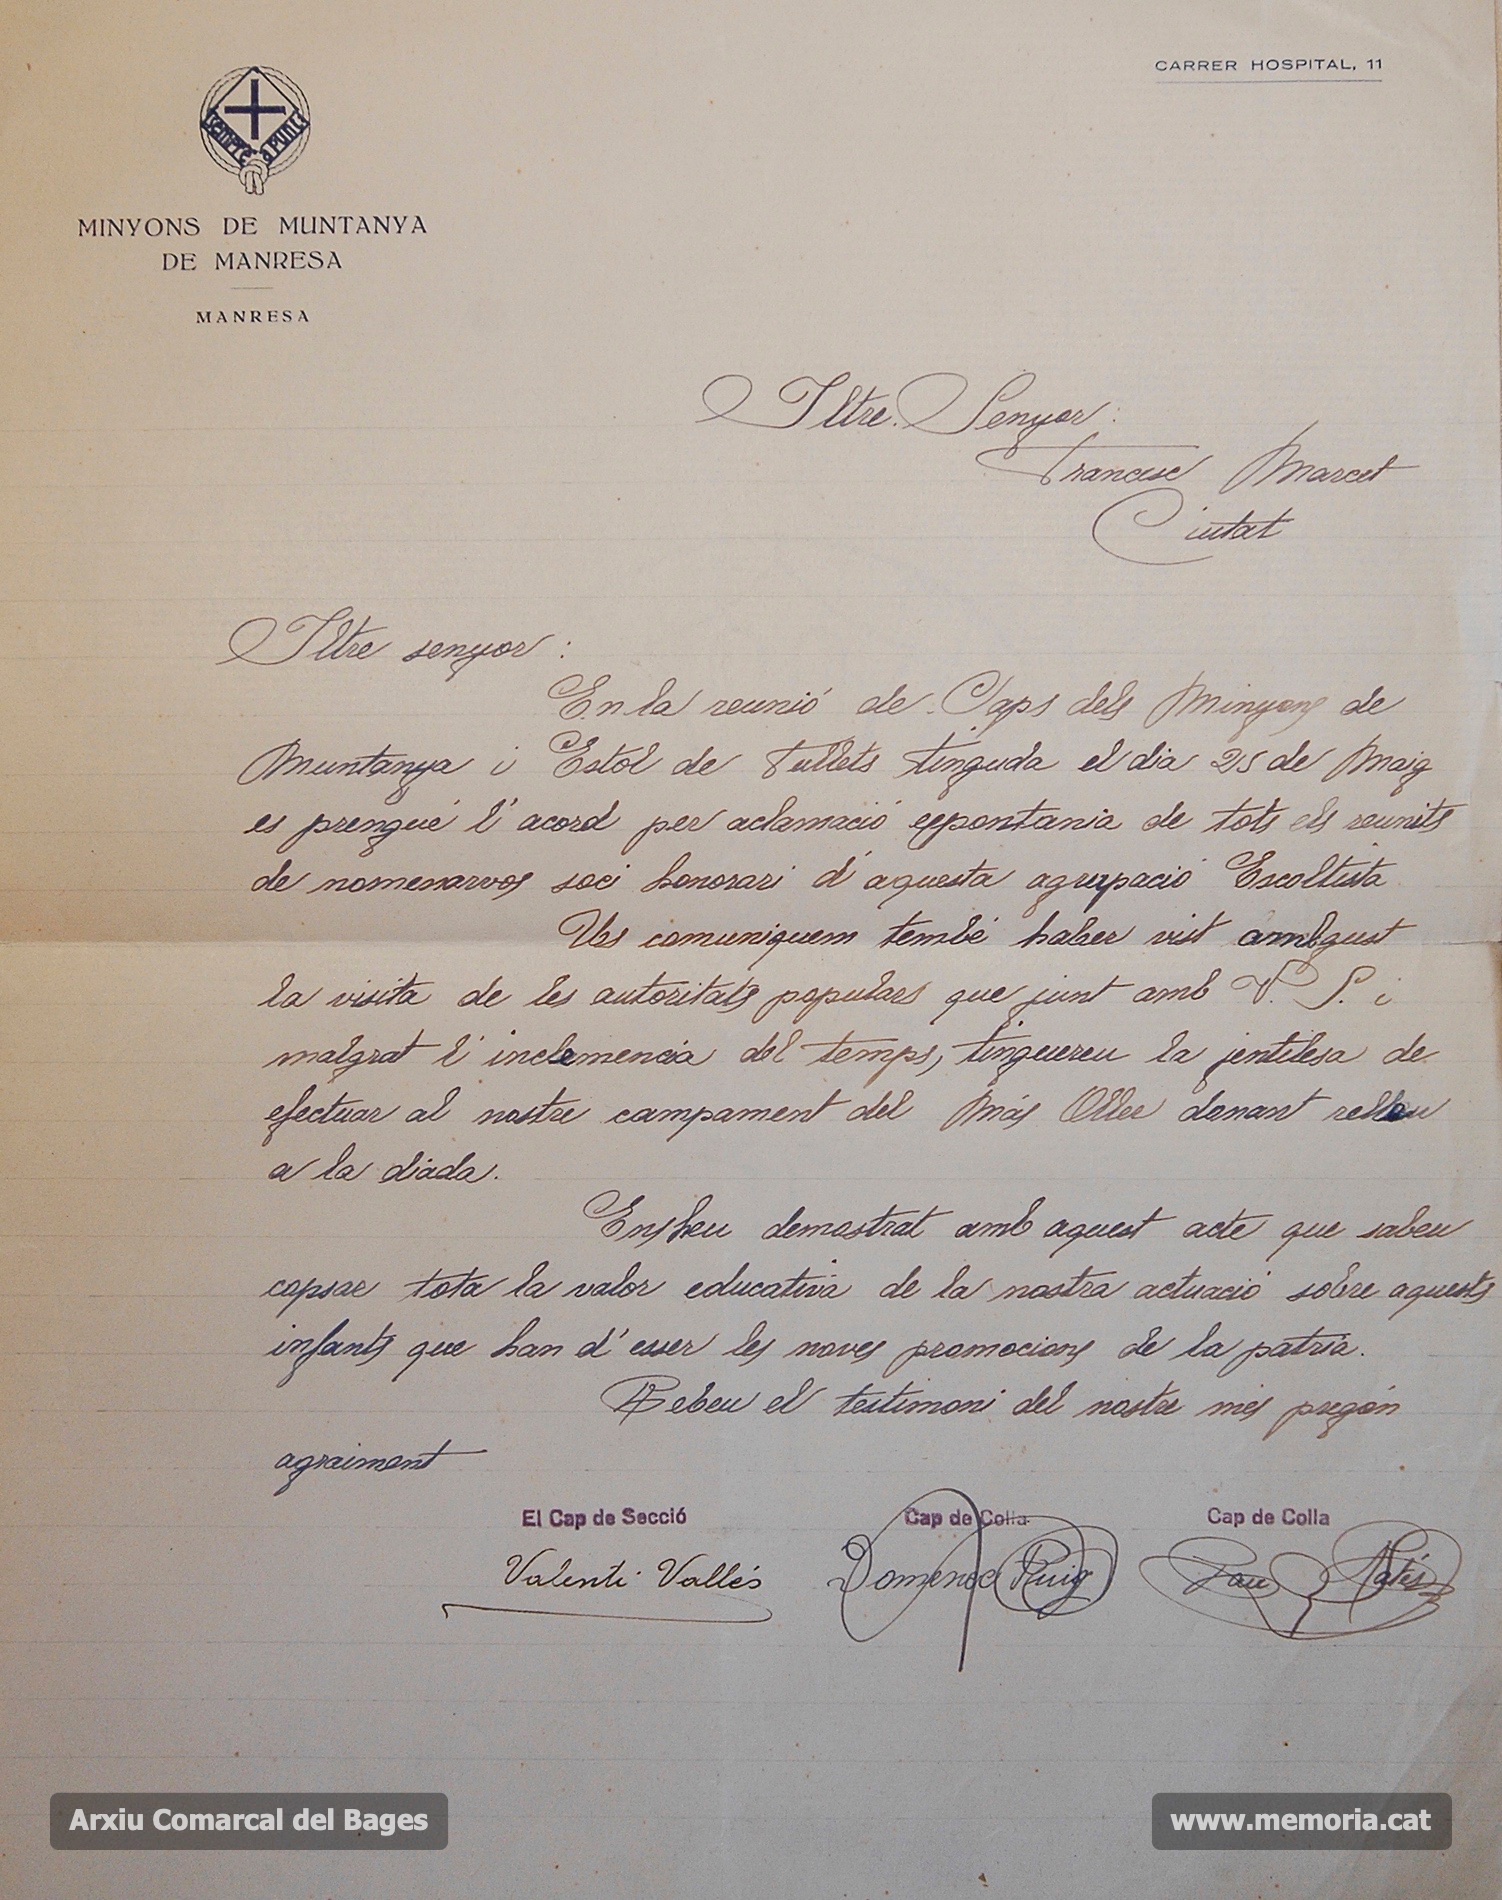 CARRER HOSPITAL, 11
SEMPRE A PUNT
MINYONS DE MUNTANYA
DE MANRESA
MANRESA
Iltre. Senyor:
Francesc Marcet
Ciutat
Iltre senyor:
En la reunió de Caps dels Minyons de
Muntanya i Estol de Fullets tinguda el dia 25 de Maig
es prengué l'acord per aclamació espontania de tots els reunits
de nomenarvos soci honorari d'aquesta agrupació Escoltista
Us comuniquem també haber vist amb gust
la visita de les autoritats populars que junt amb V. S. i
malgrat l'inclemencia del temps, tinguereu la jentilesa de
efectuar al nostre campament del Más Oller donant relleu
a la diada.
Ens heu demostrat amb aquest acte que sabeu
copsar tota la valor educativa de la nostra actuació sobre aquests
infants que han d'esser les noves promocions de la patria.
Rebeu el testimoni del nostre mes pregón
agraiment
El Cap de Secció Cap de Colla Cap de Colla
Valentí Vallés Domènec Puig Pau
Arxiu Comarcal del Bages www.memoria.cat